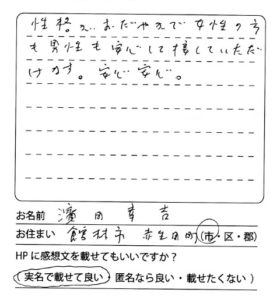 性格が、おだやかで女性の方
も男性も安心して接していただ
けます。安心安心。
お名前 濱田幸吉
お住まい 館林市 赤生田町 (市・区・郡)
HPに感想文を載せてもいいですか?
(実名で載せて良い・匿名なら良い・載せたくない)